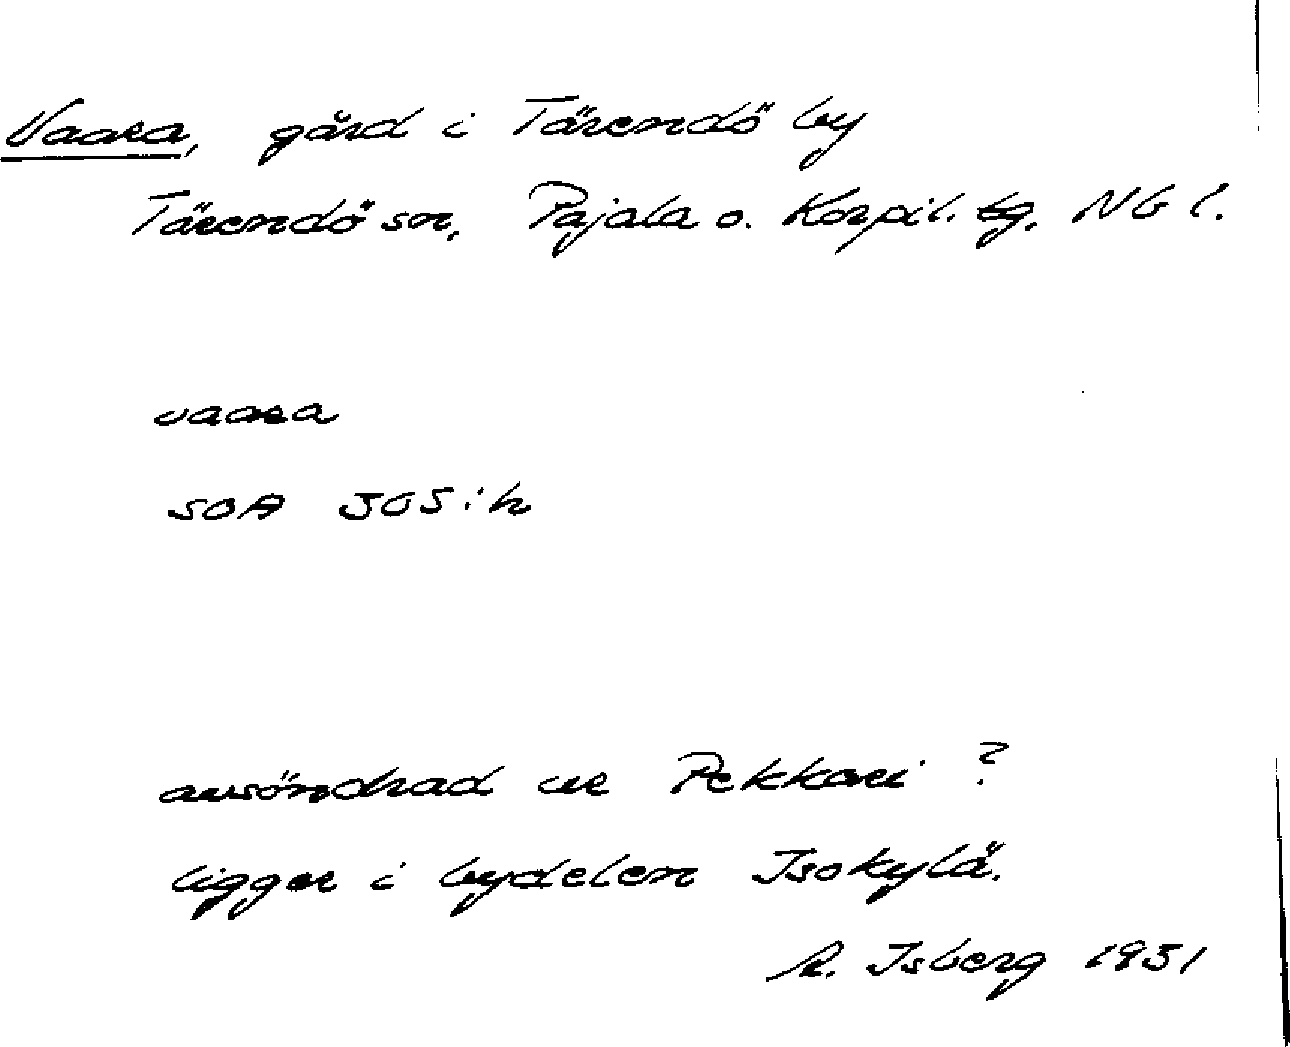 Vaara, gård i Tärendö by
Tärendö sn, Pajala o. Korpil. tg. Nb l.
vaara
SOA JOS:h
avsöndrad ur Pekkari ?
ligger i bydelen Isokylä.
R. Isberg 1931